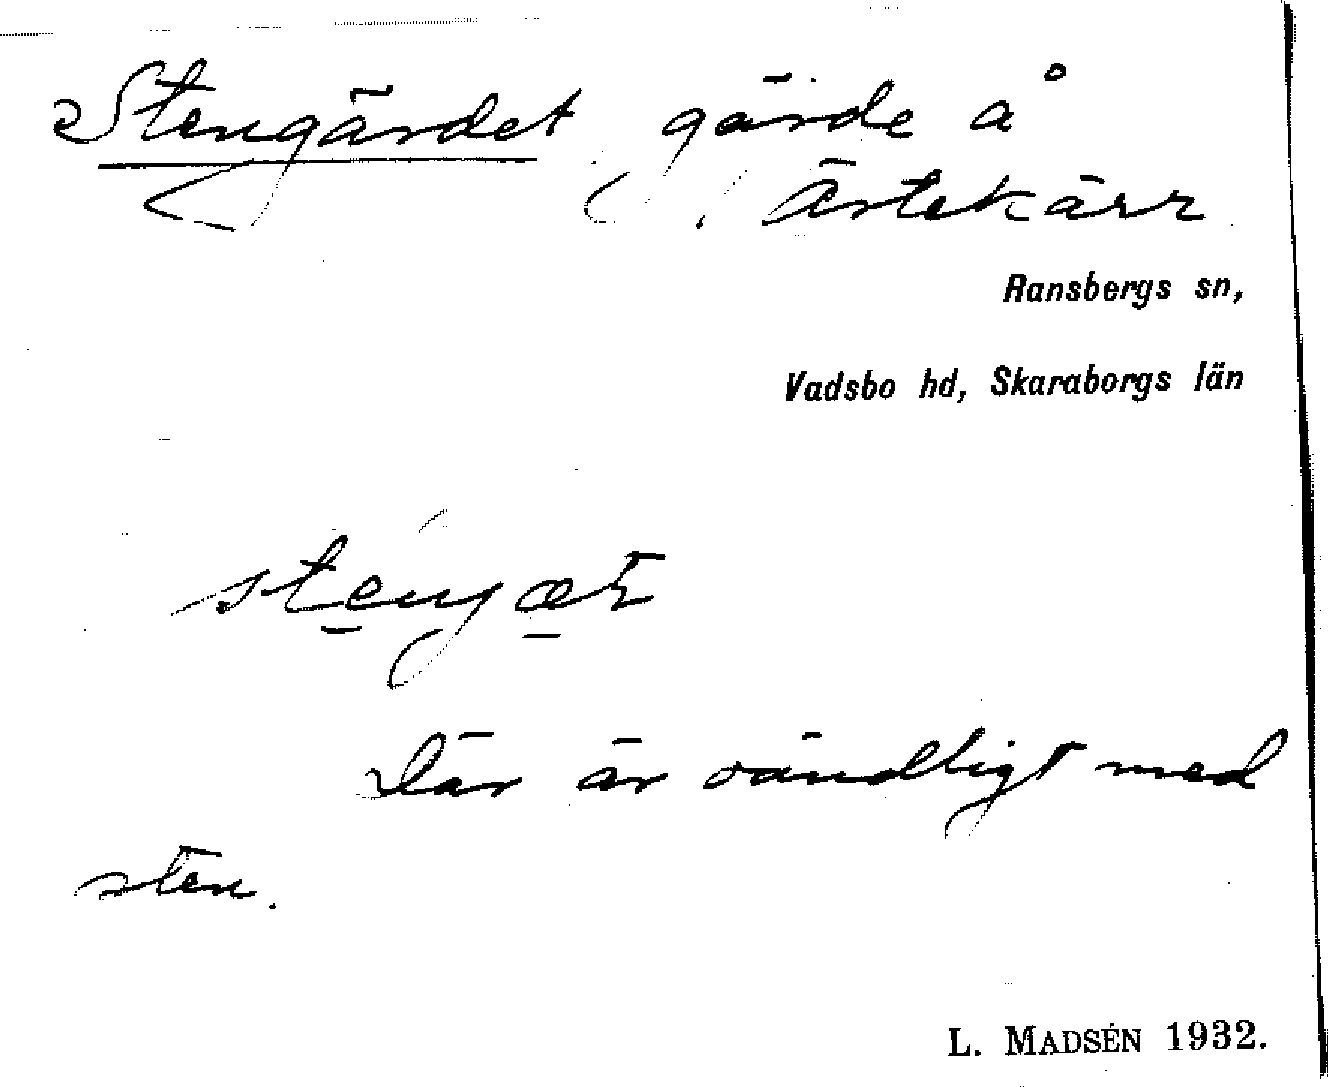 Stengärdet, gärde å
Ärtekärr
Ransbergs sn,
Vadsbo hd, Skaraborgs län
Där är oändligt med
sten.
L. MADSÉN 1932.